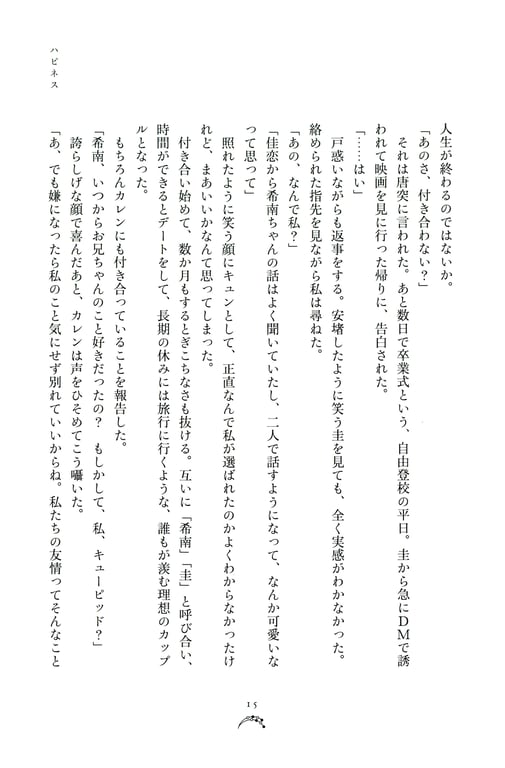 ハピネス
人生が終わるのではないか。
「あのさ、付き合わない？」
それは唐突に言われた。あと数日で卒業式という、自由登校の平日。圭から急にＤＭで誘
われて映画を見に行った帰りに、告白された。
「……はい」
戸惑いながらも返事をする。安堵したように笑う圭を見ても、全く実感がわかなかった。
絡められた指先を見ながら私は尋ねた。
「あの、なんで私？」
「佳恋から希南ちゃんの話はよく聞いていたし、二人で話すようになって、なんか可愛いな
って思って」
照れたように笑う顔にキュンとして、正直なんで私が選ばれたのかよくわからなかったけ
れど、まあいいかなんて思ってしまった。
付き合い始めて、数か月もするとぎこちなさも抜ける。互いに「希南」「圭」と呼び合い、
時間ができるとデートをして、長期の休みには旅行に行くような、誰もが羨む理想のカップ
ルとなった。
もちろんカレンにも付き合っていることを報告した。
「希南、いつからお兄ちゃんのこと好きだったの？　もしかして、私、キューピッド？」
誇らしげな顔で喜んだあと、カレンは声をひそめてこう囁いた。
「あ、でも嫌になったら私のこと気にせず別れていいからね。私たちの友情ってそんなこと
15